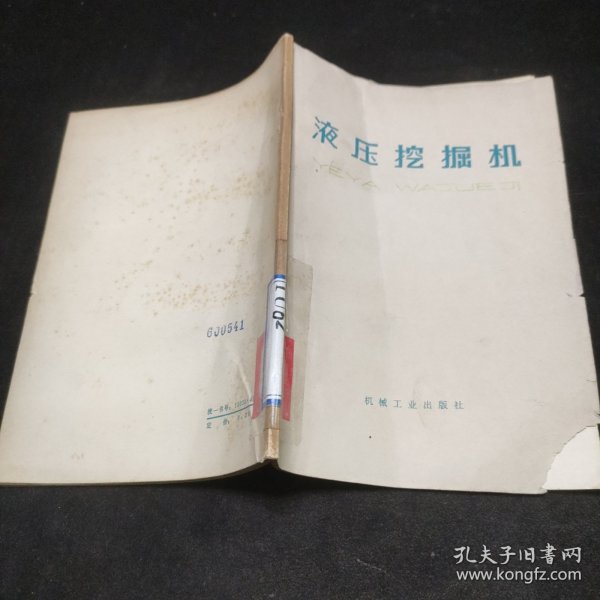 液压挖掘机
YEYA WAJUEJI
机械工业出版社
GJ0541
统一书号：
定价：
孔夫子旧书网
www.kongfz.com